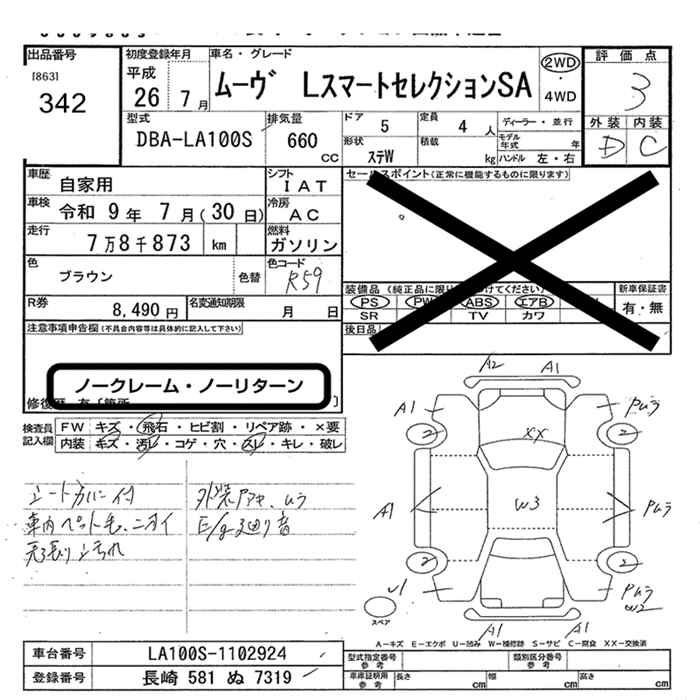 出品番号
[863]
342
初度登録年月
平成
26 7 月
車名・グレード
ムーヴ LスマートセレクションSA
2WD
・
4WD
評価点
3
外装 内装
D C
型式
DBA-LA100S
排気量
660
cc
ドア 5
定員 4 人
形状 ステW
積載 kg
ディーラー・並行
モデル年式 年
ハンドル 左・右
車歴 自家用
車検 令和 9 年 7 月(30 日)
走行 7万8千873 km
色 ブラウン 色替
シフト IAT
冷房 AC
燃料 ガソリン
色コード R59
R券 8,490 円
名変通知期限 月 日
セールスポイント(正常に機能するものに限ります)
新車保証書
有・無
PS PW ABS エアB
SR TV カワ
後日品
注意事項申告欄(不具合内容等は具体的に記入して下さい)
ノークレーム・ノーリターン
検査員
記入欄
FW キズ・飛石・ヒビ割・リペア跡・×要
内装 キズ・汚レ・コゲ・穴・スレ・キレ・破レ
シートカバー付
車内ペット毛、ニオイ
天張り汚れ
外装アセ、ムラ
E/g廻り音
A2 A1
A1 Pムラ
2 2
XX
A1 W3 Pムラ
2 2
Pムラ
W2
スペア
A1 A1
A-キズ E-エクボ U-凹み W-補修跡 S-サビ C-腐食 XX-交換済
車台番号 LA100S-1102924
登録番号 長崎 581 ぬ 7319
型式指定番号 参考
類別区分番号 参考
車庫証明用 参考
長さ cm 幅 cm 高さ cm